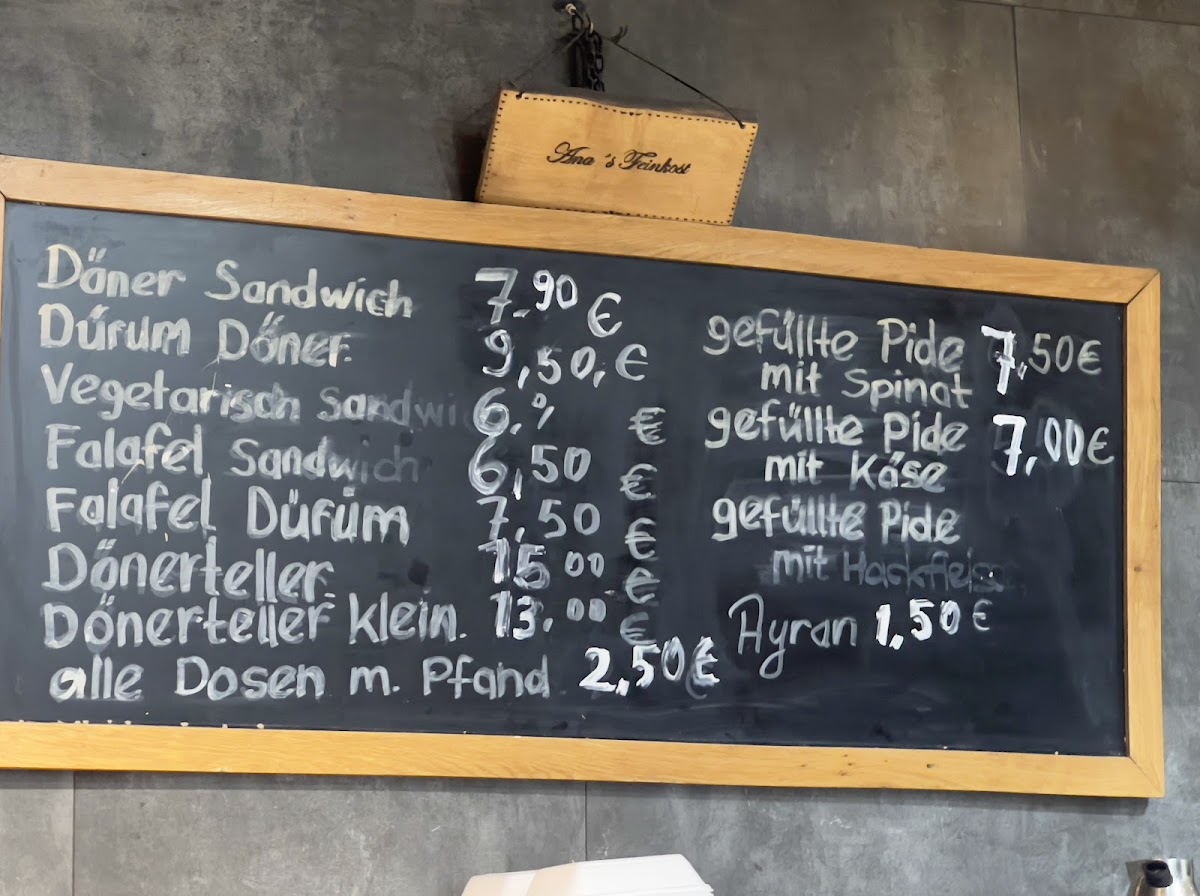 Ana's Feinkost
Döner Sandwich 7.90 €
Dürum Döner 9,50,€
Vegetarisch Sandwi 6,% €
Falafel Sandwich 6,50 €
Falafel Dürüm 7,50 €
Dönerteller 15,00 €
Dönerteller Klein. 13.00 €
alle Dosen m. Pfand 2,50€
gefüllte Pide 7,50€
mit Spinat
gefüllte Pide 7,00€
mit Käse
gefüllte Pide
mit Hackfleisc
Ayran 1,50€